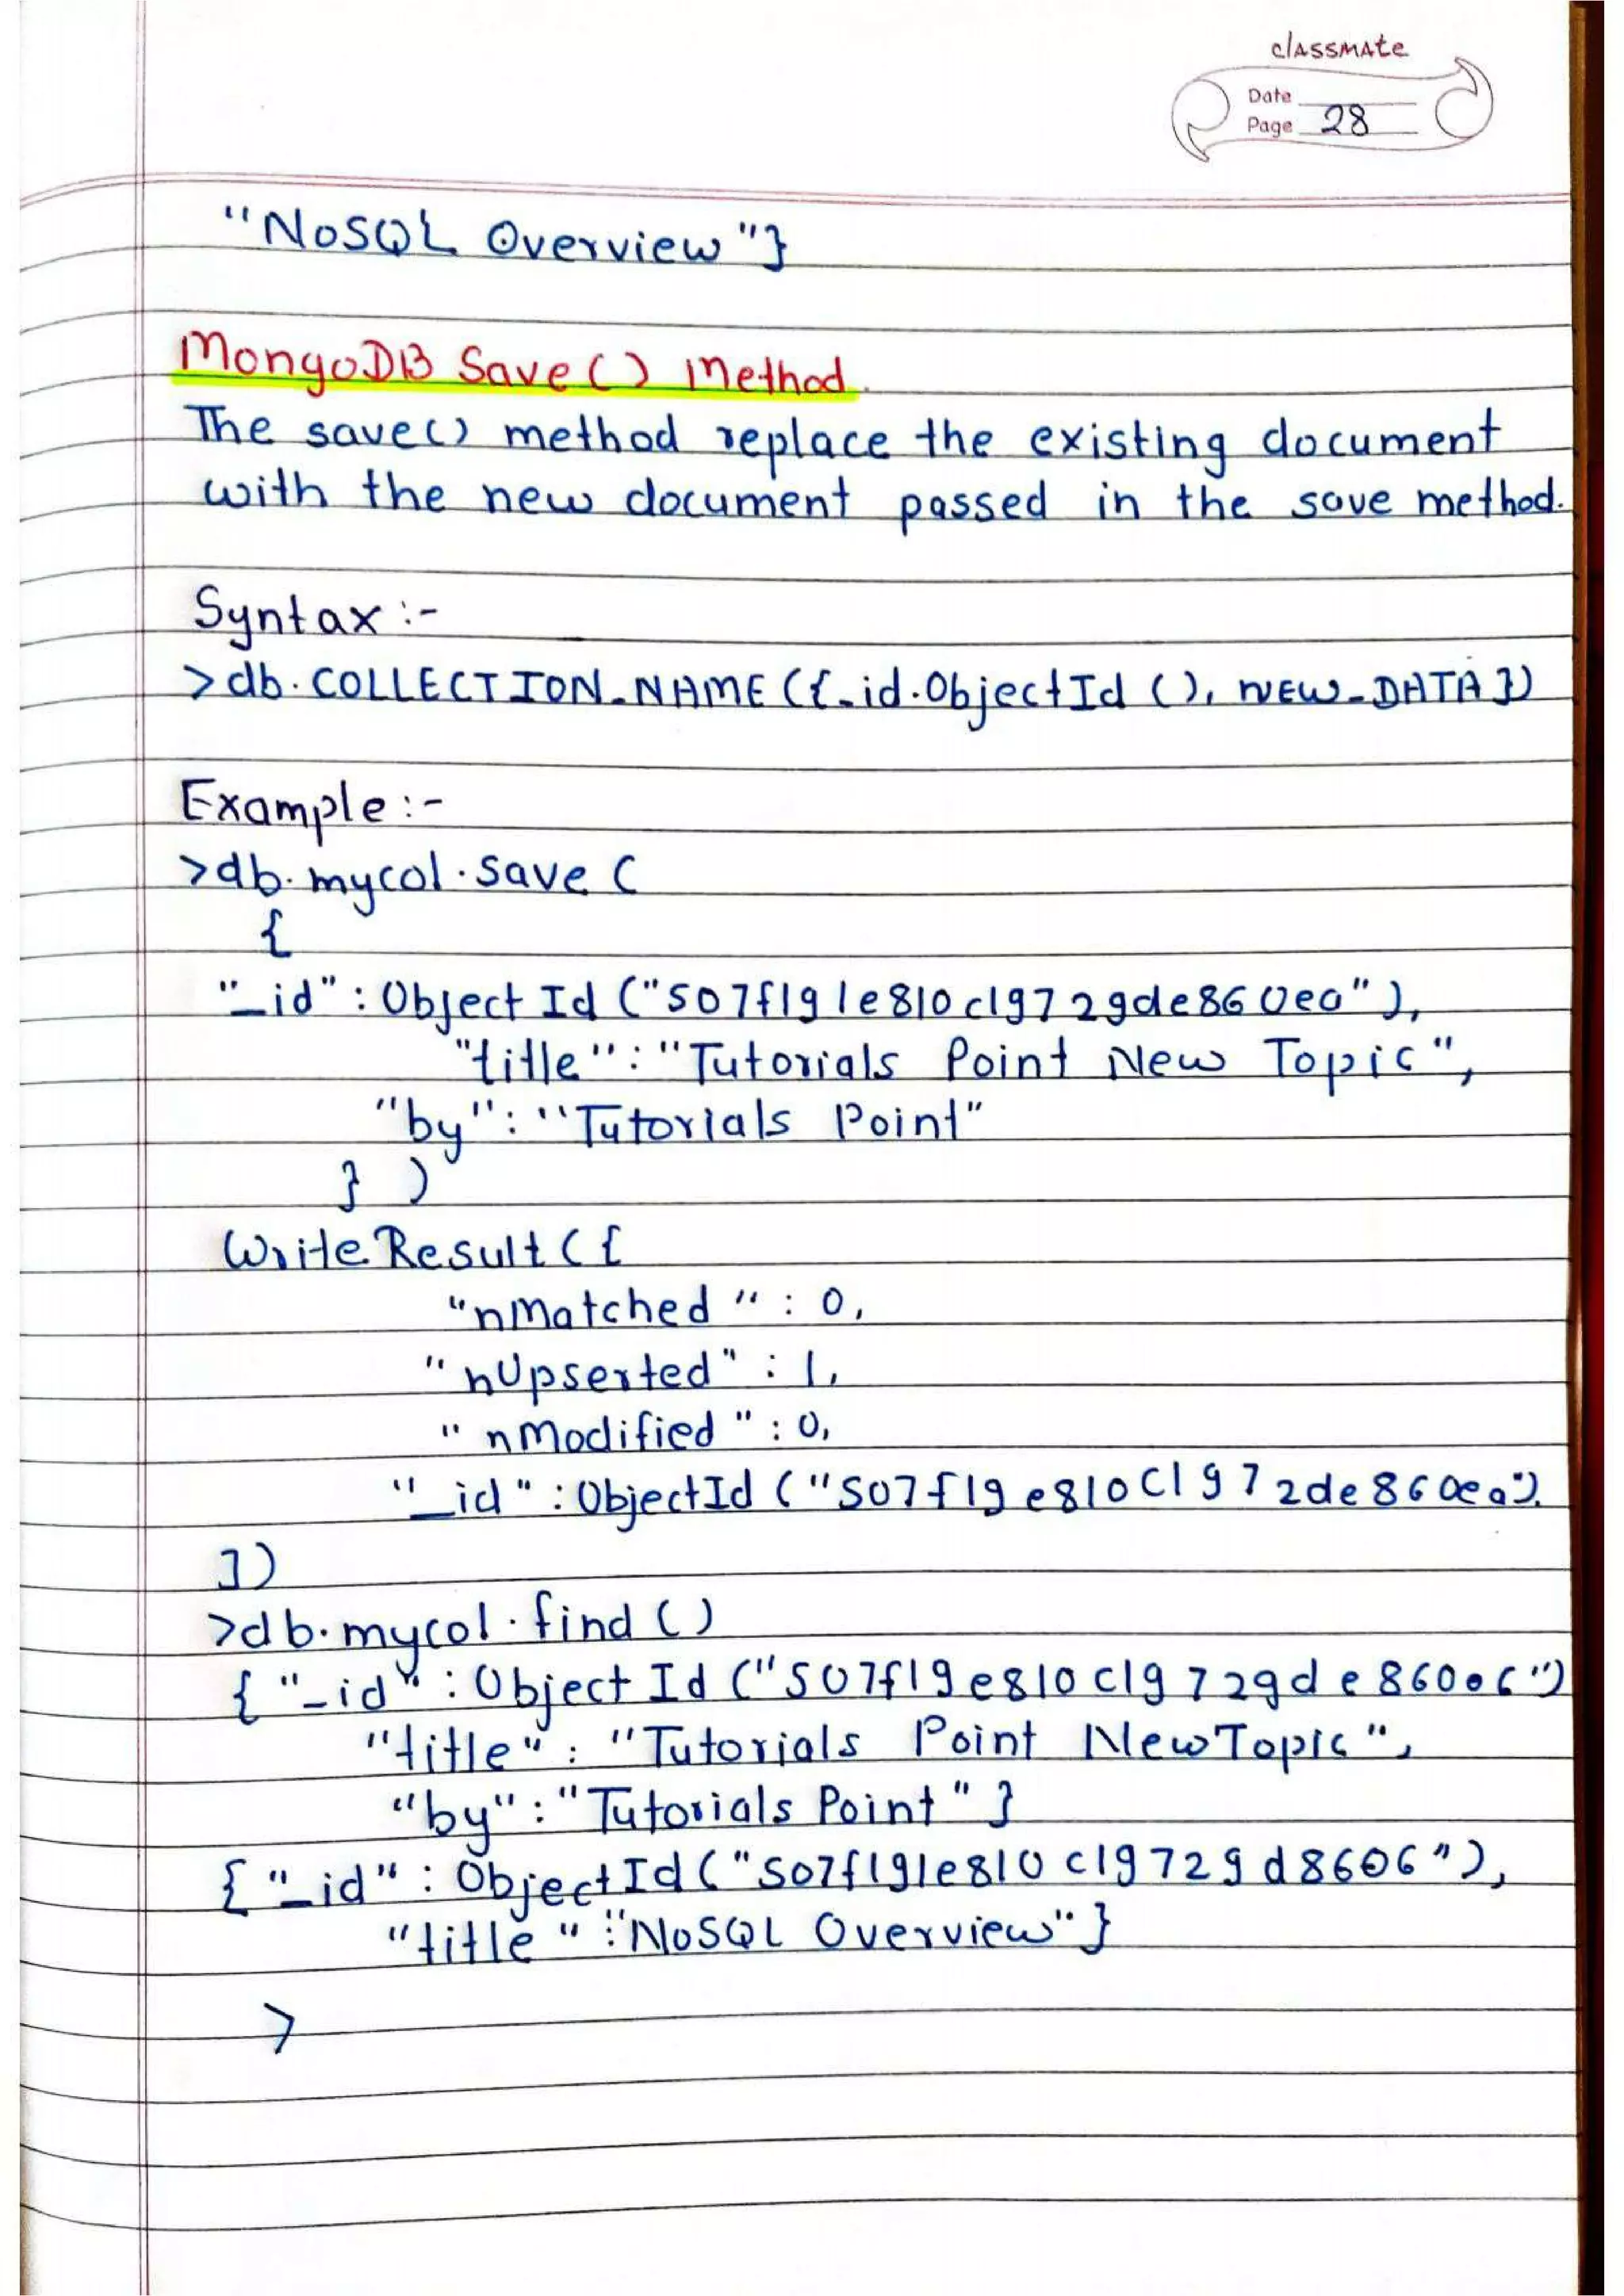 classmate
Date
Page 28
"NoSQL Overview"}
MongoDB Save() Method
The save() method replace the existing document
with the new document passed in the save method.
Syntax :-
>db.COLLECTION_NAME({_id.ObjectId (), NEW_DATA})
Example :-
>db.mycol.save (
{
"_id" : Object Id ("507f191e810c19729de860ea"),
"title" : "Tutorials Point New Topic",
"by" : "Tutorials Point"
} )
WriteResult ({
"nMatched" : 0,
"nUpserted" : 1,
"nModified" : 0,
"_id" : ObjectId ("507f19e810C1972de860ea").
])
>db.mycol.find ()
{ "_id" : Object Id ("507f19e810c19729de86006")
"title" : "Tutorials Point NewTopic",
"by" : "Tutorials Point" }
{ "_id" : ObjectId ("507f191e810c19729d8606"),
"title" : "NoSQL Overview"}
>